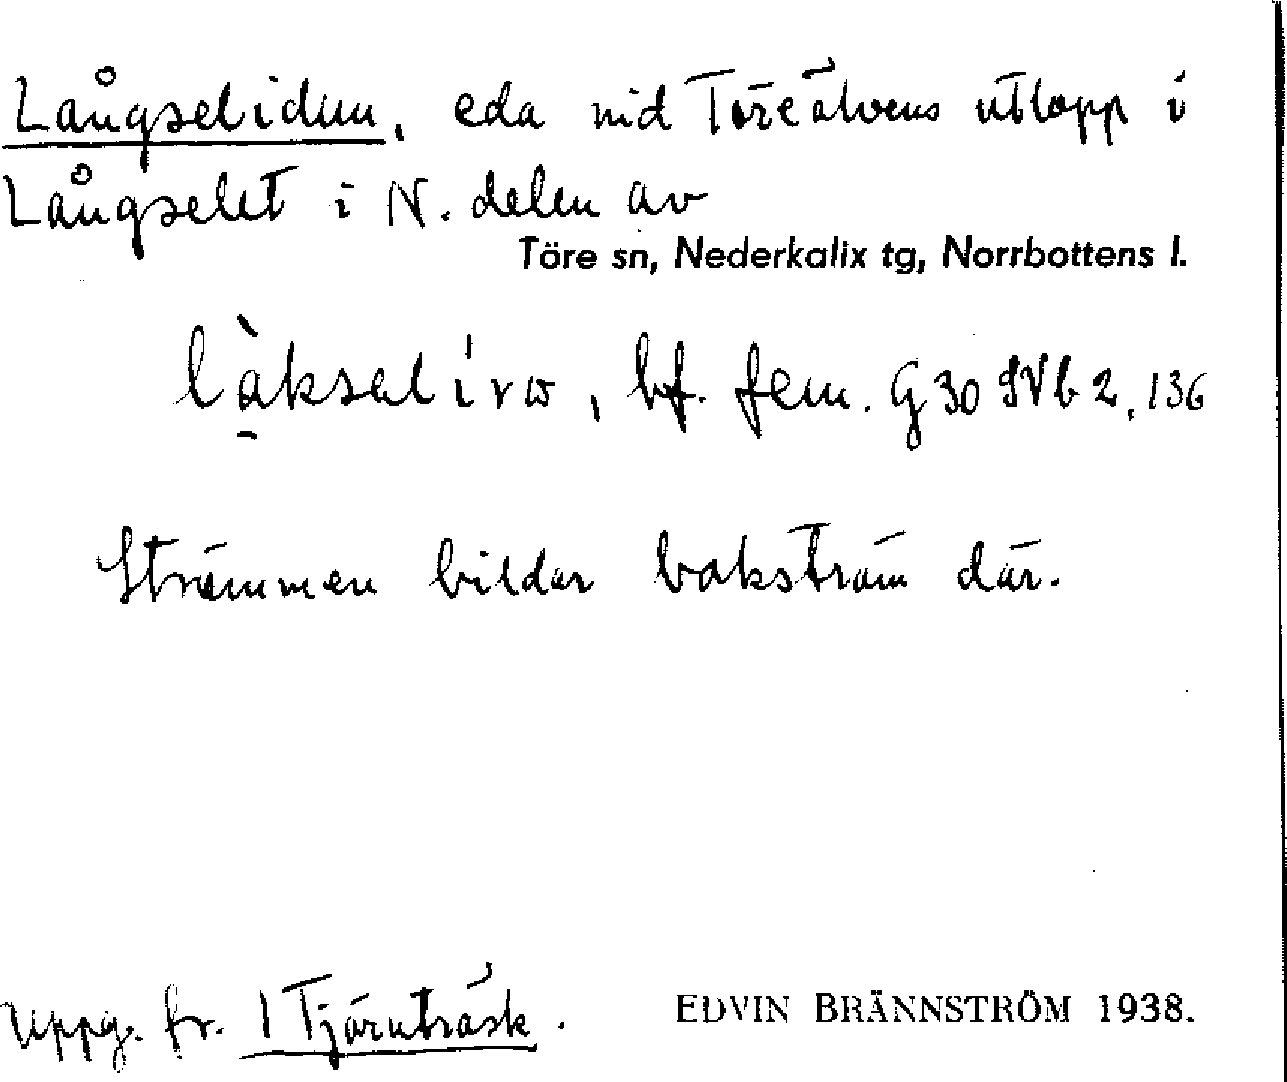 Långselidun, eda vid Töreälvens utlopp i
Långselet i N. delen av
Töre sn, Nederkalix tg, Norrbottens l.
bf. fem. G 30 SVb 2, 136
Strömmen bildar bakström där.
Uppg. fr. 1 Tjärnträsk.
EDVIN BRÄNNSTRÖM 1938.